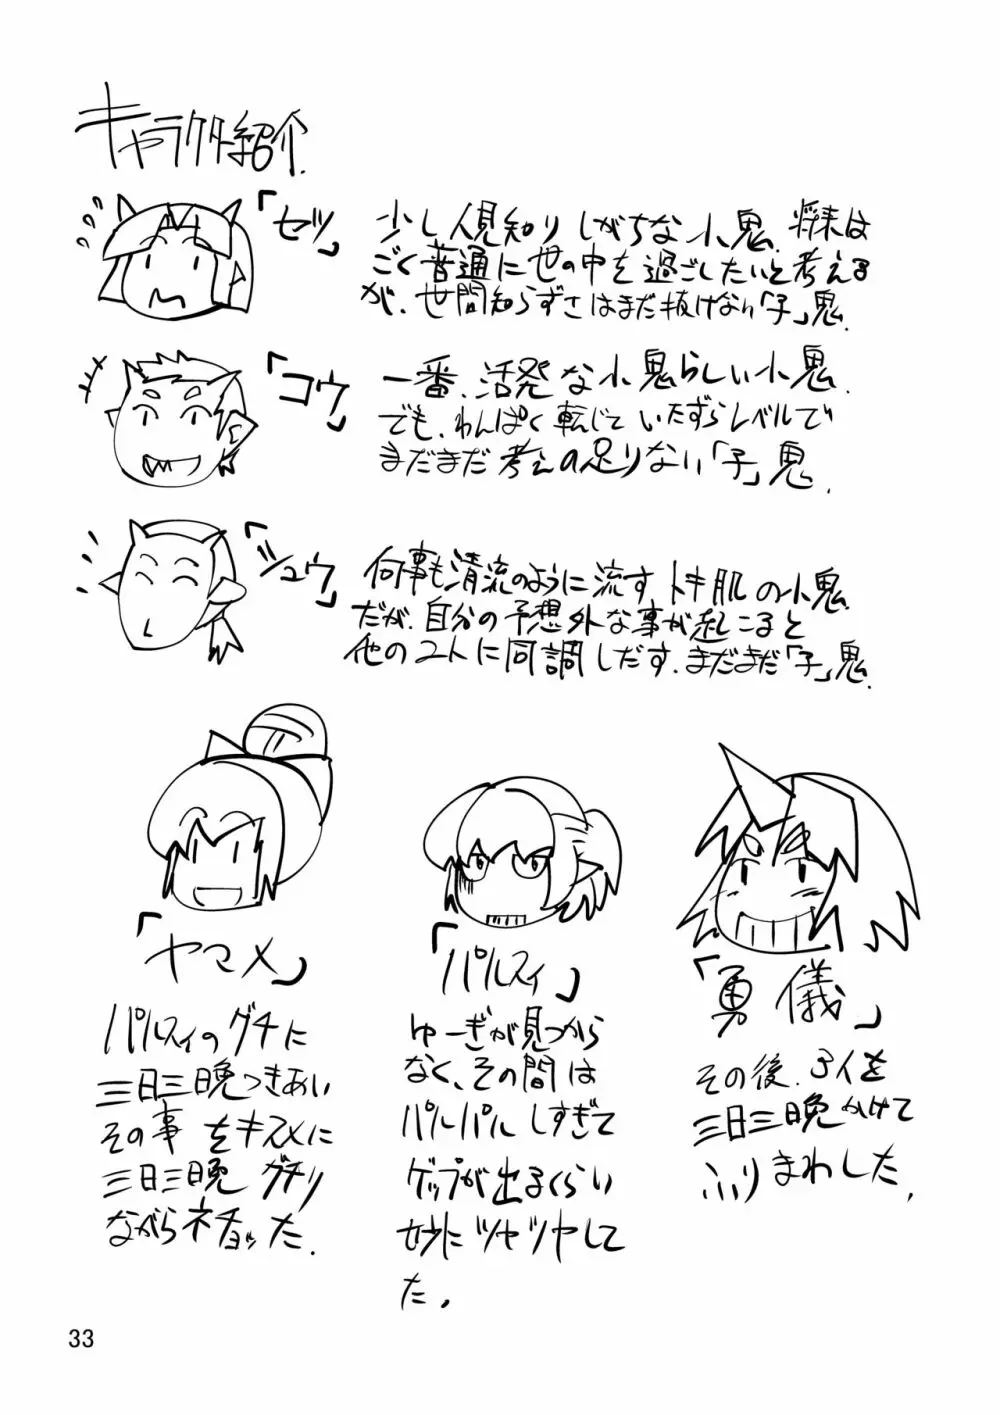 キャラクター紹介.
「セツ」
少し人見知りしがちな小鬼. 将来は
ごく普通に世の中を過ごしたいと考える
が、世間知らずさはまだ抜けない「子」鬼.
「コウ」
一番、活発な小鬼らしい小鬼.
でも、わんぱく転じていたずらレベルで
まだまだ考えの足りない「子」鬼.
「シュウ」
何事も清流のように流す、トキ肌の小鬼
だが、自分の予想外な事が起こると
他の2人に同調しだす. まだまだ「子」鬼.
「ヤマメ」
パルスィのグチに
三日三晩つきあい
その事をキスメに
三日三晩グチり
ながらネチョッた.
「パルスィ」
ゆーぎが見つから
なく、その間は
パルパルしすぎて
ゲップが出るくらい
妙にツヤツヤして
た。
「勇儀」
その後、3人を
三日三晩かけて
ふりまわした.
33